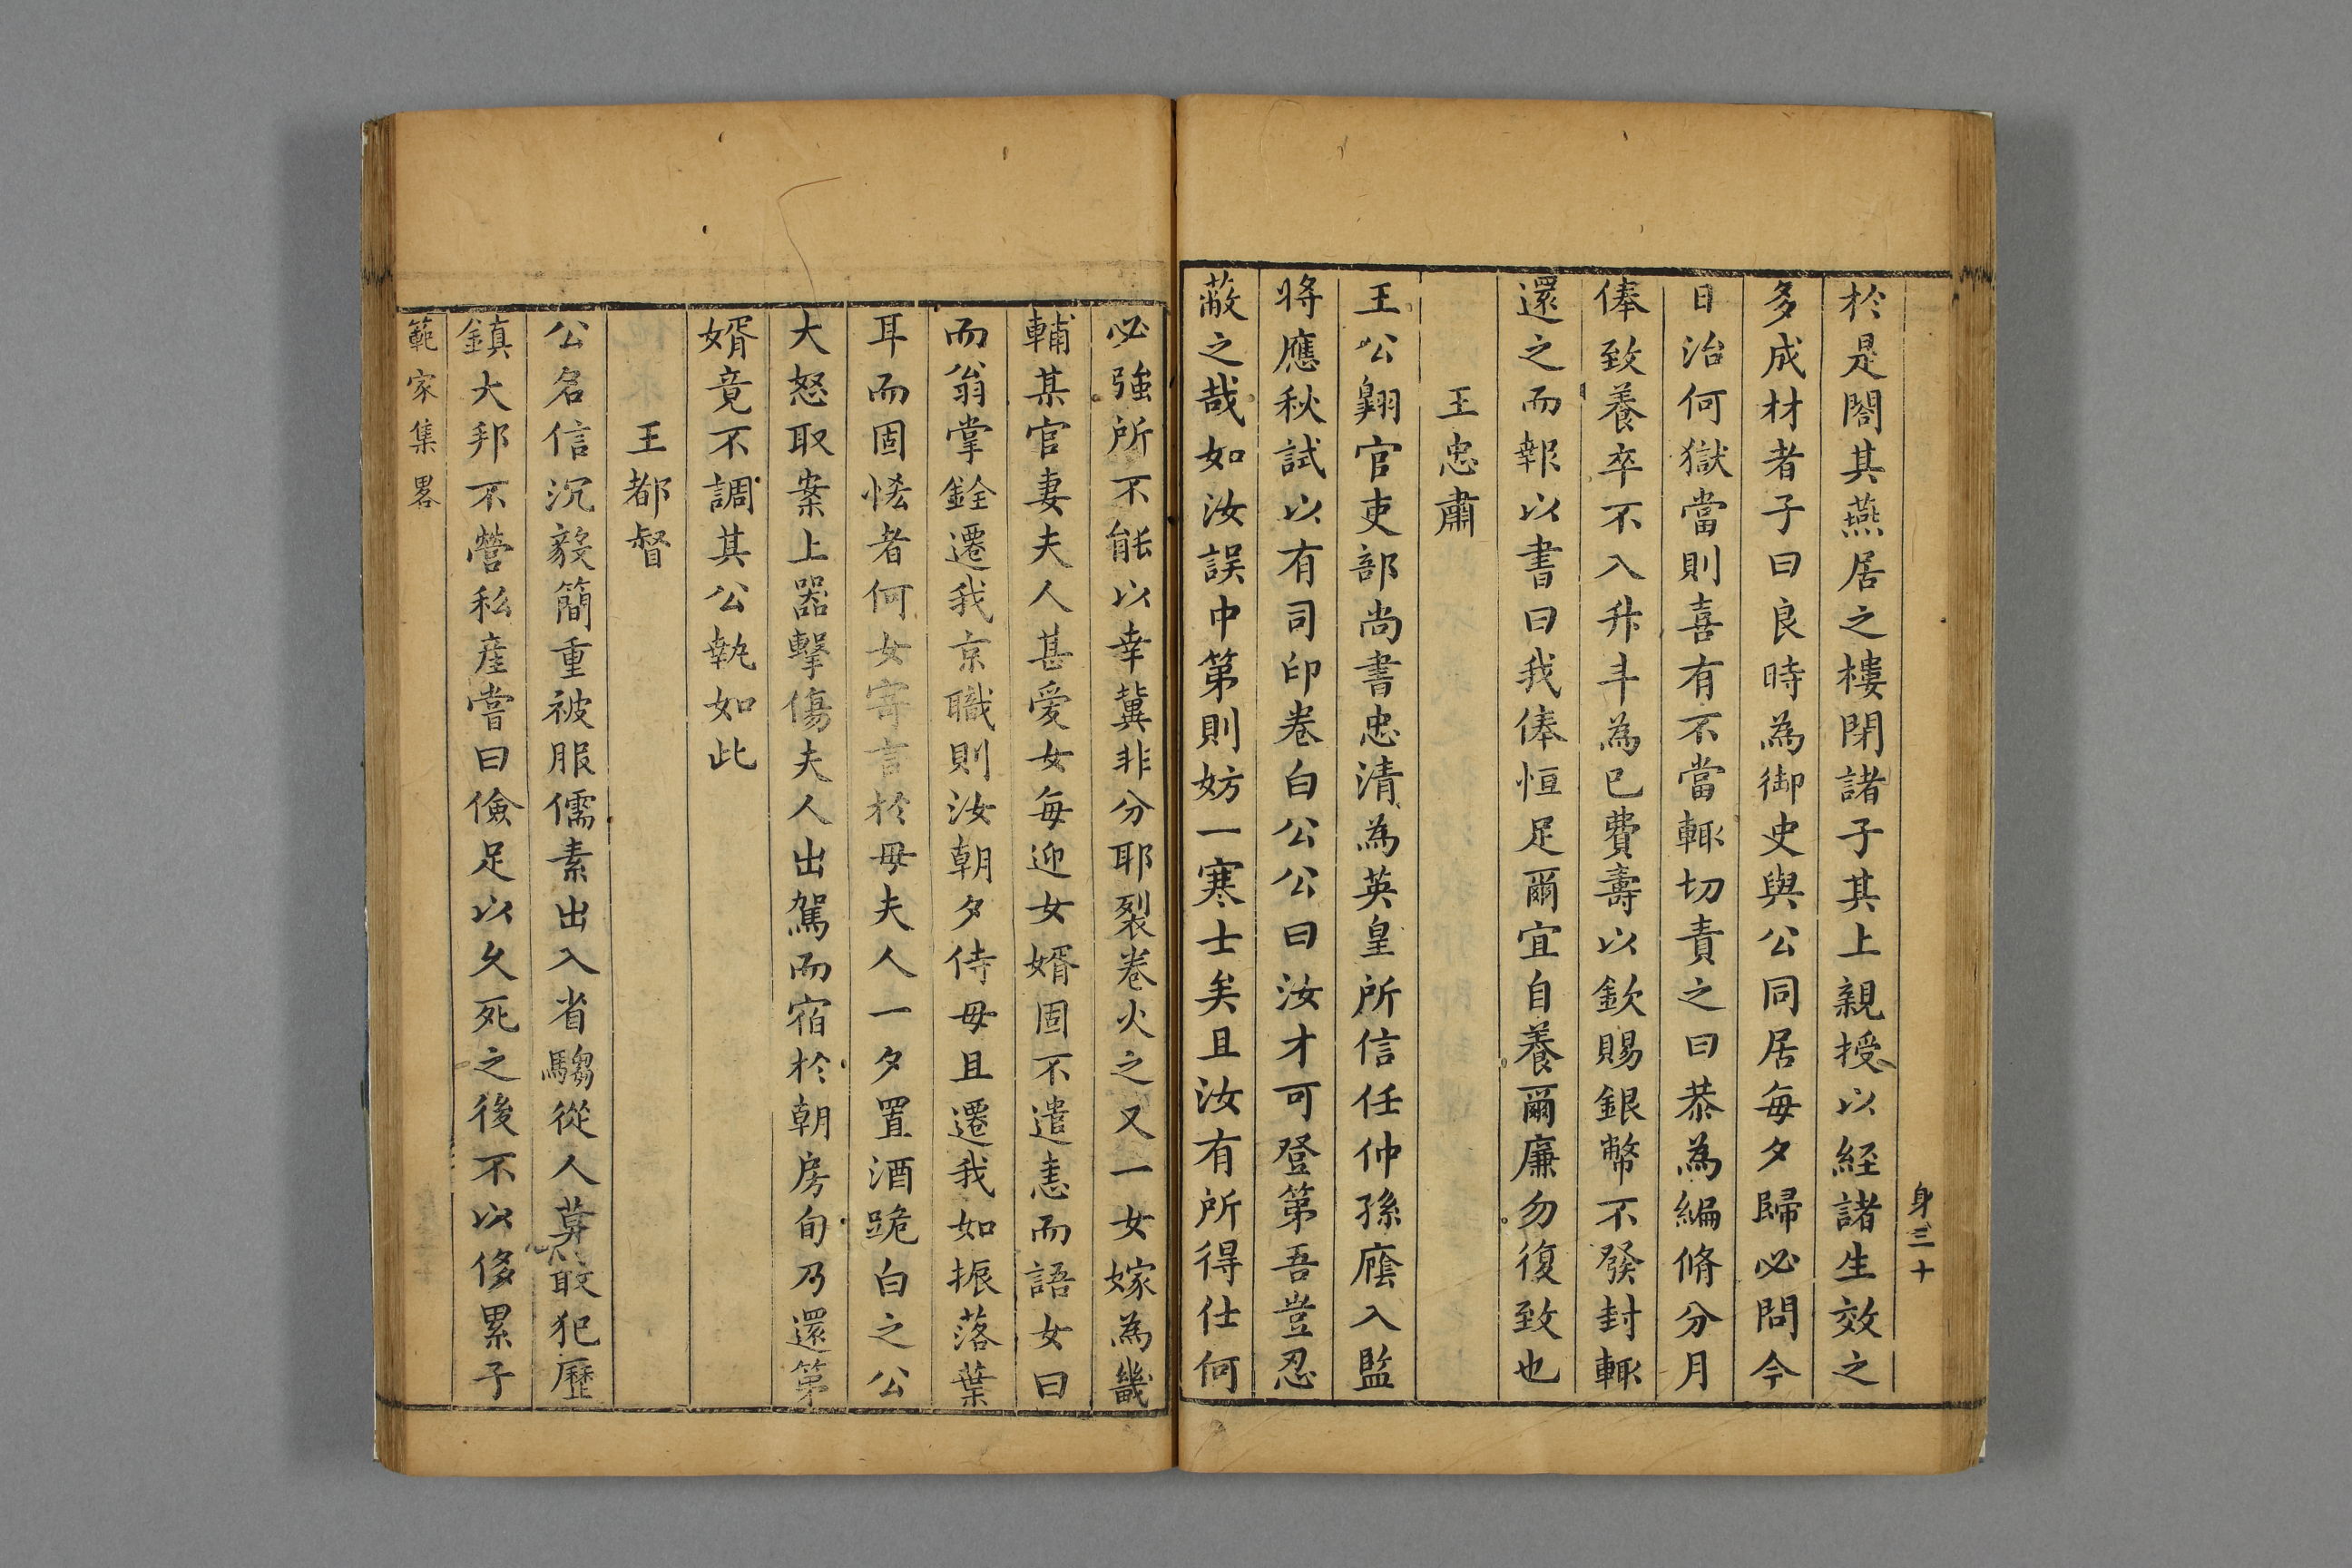 身三十
於是閣其燕居之樓閉諸子其上親授以経諸生效之
多成材者子曰良時為御史與公同居每夕歸必問今
日治何獄當則喜有不當輙切責之曰恭為編脩分月
俸致養卒不入升斗為已費壽以欽賜銀幣不發封輙
還之而報以書曰我俸恒足爾宜自養爾廉勿復致也
王忠肅
王公翱官吏部尚書忠清為英皇所信任仲孫廕入監
將應秋試以有司印卷白公公曰汝才可登第吾豈忍
蔽之哉如汝誤中第則妨一寒士矣且汝有所得仕何
必強所不能以幸冀非分耶裂卷火之又一女嫁為畿
輔某官妻夫人甚愛女每迎女婿固不遣恚而語女曰
而翁掌銓遷我京職則汝朝夕侍毋且遷我如振落葉
耳而固恡者何女寄言於毋夫人一夕置酒跪白之公
大怒取案上器擊傷夫人出駕而宿於朝房旬乃還第
婿竟不調其公執如此
王都督
公名信沉毅簡重被服儒素出入省騶從人莫敢犯歷
鎮大邦不營私産嘗曰儉足以久死之後不以侈累子
範家集畧